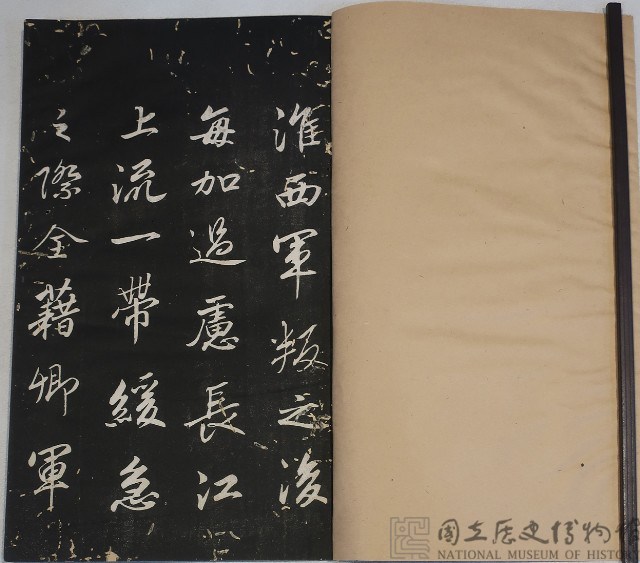 淮西軍叛之後
每加過慮長江
上流一帶緩急
之際全藉卿軍
國立歷史博物館
NATIONAL MUSEUM OF HISTOR